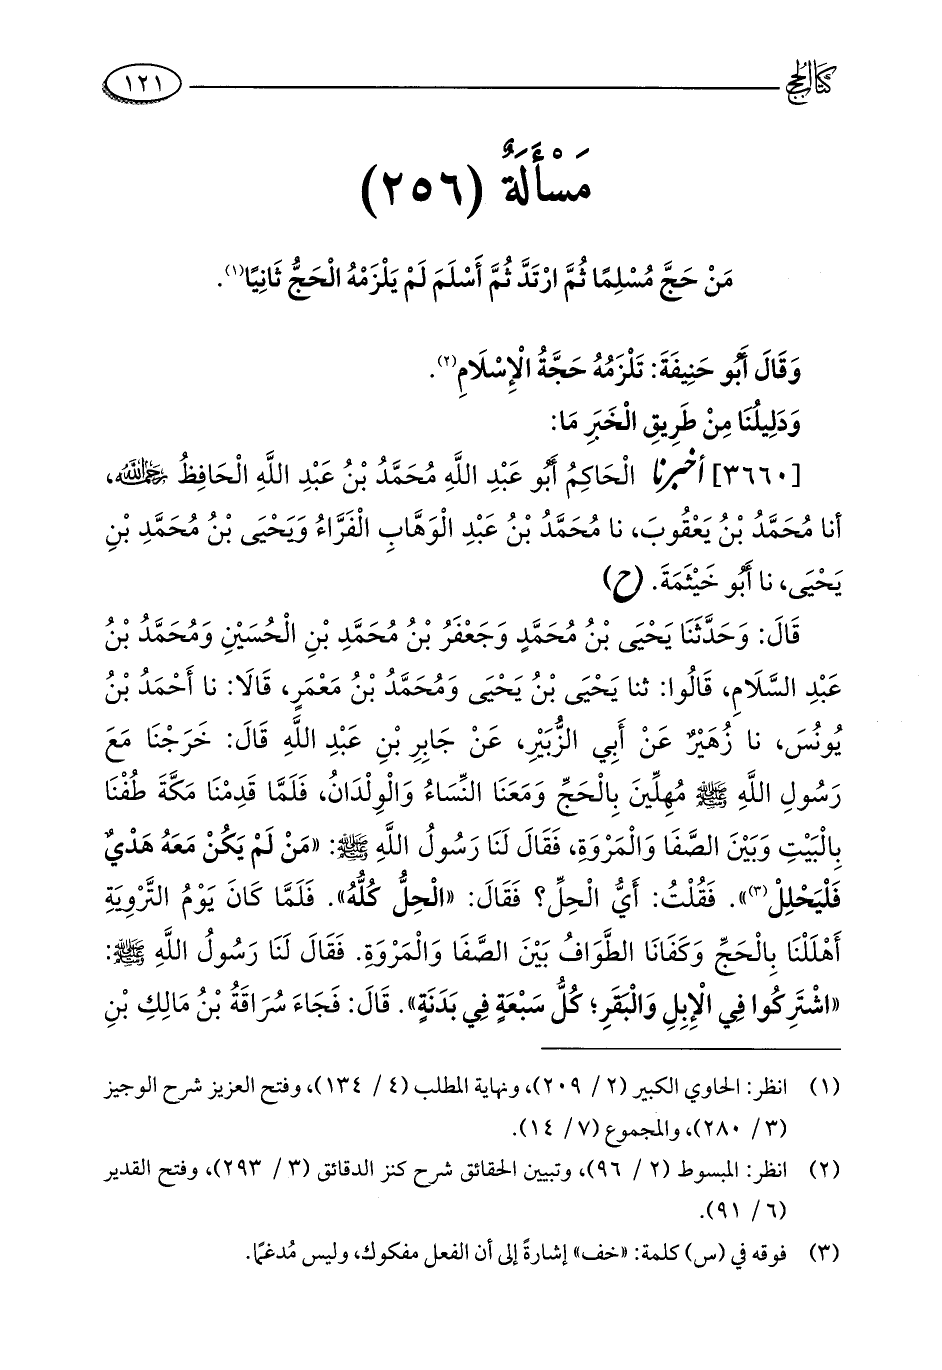 كتاب الحج
١٢١
مَسْأَلَةٌ (٢٥٦)
مَنْ حَجَّ مُسْلِمًا ثُمَّ ارْتَدَّ ثُمَّ أَسْلَمَ لَمْ يَلْزَمْهُ الْحَجُّ ثَانِيًا(١).
وَقَالَ أَبُو حَنِيفَةَ: تَلْزَمُهُ حَجَّةُ الْإِسْلَامِ(٢).
وَدَلِيلُنَا مِنْ طَرِيقِ الْخَبَرِ مَا:
[٣٦٦٠] أخبرنا الْحَاكِمُ أَبُو عَبْدِ اللَّهِ مُحَمَّدُ بْنُ عَبْدِ اللَّهِ الْحَافِظُ رحمه الله،
أنا مُحَمَّدُ بْنُ يَعْقُوبَ، نا مُحَمَّدُ بْنُ عَبْدِ الْوَهَّابِ الْفَرَّاءُ وَيَحْيَى بْنُ مُحَمَّدِ بْنِ
يَحْيَى، نا أَبُو خَيْثَمَةَ. (ح)
قَالَ: وَحَدَّثَنَا يَحْيَى بْنُ مُحَمَّدٍ وَجَعْفَرُ بْنُ مُحَمَّدِ بْنِ الْحُسَيْنِ وَمُحَمَّدُ بْنُ
عَبْدِ السَّلَامِ، قَالُوا: ثنا يَحْيَى بْنُ يَحْيَى وَمُحَمَّدُ بْنُ مَعْمَرٍ، قَالَا: نا أَحْمَدُ بْنُ
يُونُسَ، نا زُهَيْرٌ عَنْ أَبِي الزُّبَيْرِ، عَنْ جَابِرِ بْنِ عَبْدِ اللَّهِ قَالَ: خَرَجْنَا مَعَ
رَسُولِ اللَّهِ ﷺ مُهِلِّينَ بِالْحَجِّ وَمَعَنَا النِّسَاءُ وَالْوِلْدَانُ، فَلَمَّا قَدِمْنَا مَكَّةَ طُفْنَا
بِالْبَيْتِ وَبَيْنَ الصَّفَا وَالْمَرْوَةِ، فَقَالَ لَنَا رَسُولُ اللَّهِ ﷺ: «مَنْ لَمْ يَكُنْ مَعَهُ هَدْيٌ
فَلْيَحْلِلْ(٣)». فَقُلْتُ: أَيُّ الْحِلِّ؟ فَقَالَ: «الْحِلُّ كُلُّهُ». فَلَمَّا كَانَ يَوْمُ التَّرْوِيَةِ
أَهْلَلْنَا بِالْحَجِّ وَكَفَانَا الطَّوَافُ بَيْنَ الصَّفَا وَالْمَرْوَةِ. فَقَالَ لَنَا رَسُولُ اللَّهِ ﷺ:
«اشْتَرِكُوا فِي الْإِبِلِ وَالْبَقَرِ؛ كُلُّ سَبْعَةٍ فِي بَدَنَةٍ». قَالَ: فَجَاءَ سُرَاقَةُ بْنُ مَالِكِ بْنِ
(١) انظر: الحاوي الكبير (٢/ ٢٠٩)، ونهاية المطلب (٤/ ١٣٤)، وفتح العزيز شرح الوجيز
(٣/ ٢٨٠)، والمجموع (٧/ ١٤).
(٢) انظر: المبسوط (٢/ ٩٦)، وتبيين الحقائق شرح كنز الدقائق (٣/ ٢٩٣)، وفتح القدير
(٦/ ٩١).
(٣) فوقه في (س) كلمة: «خف» إشارةً إلى أن الفعل مفكوك، وليس مُدغمًا.